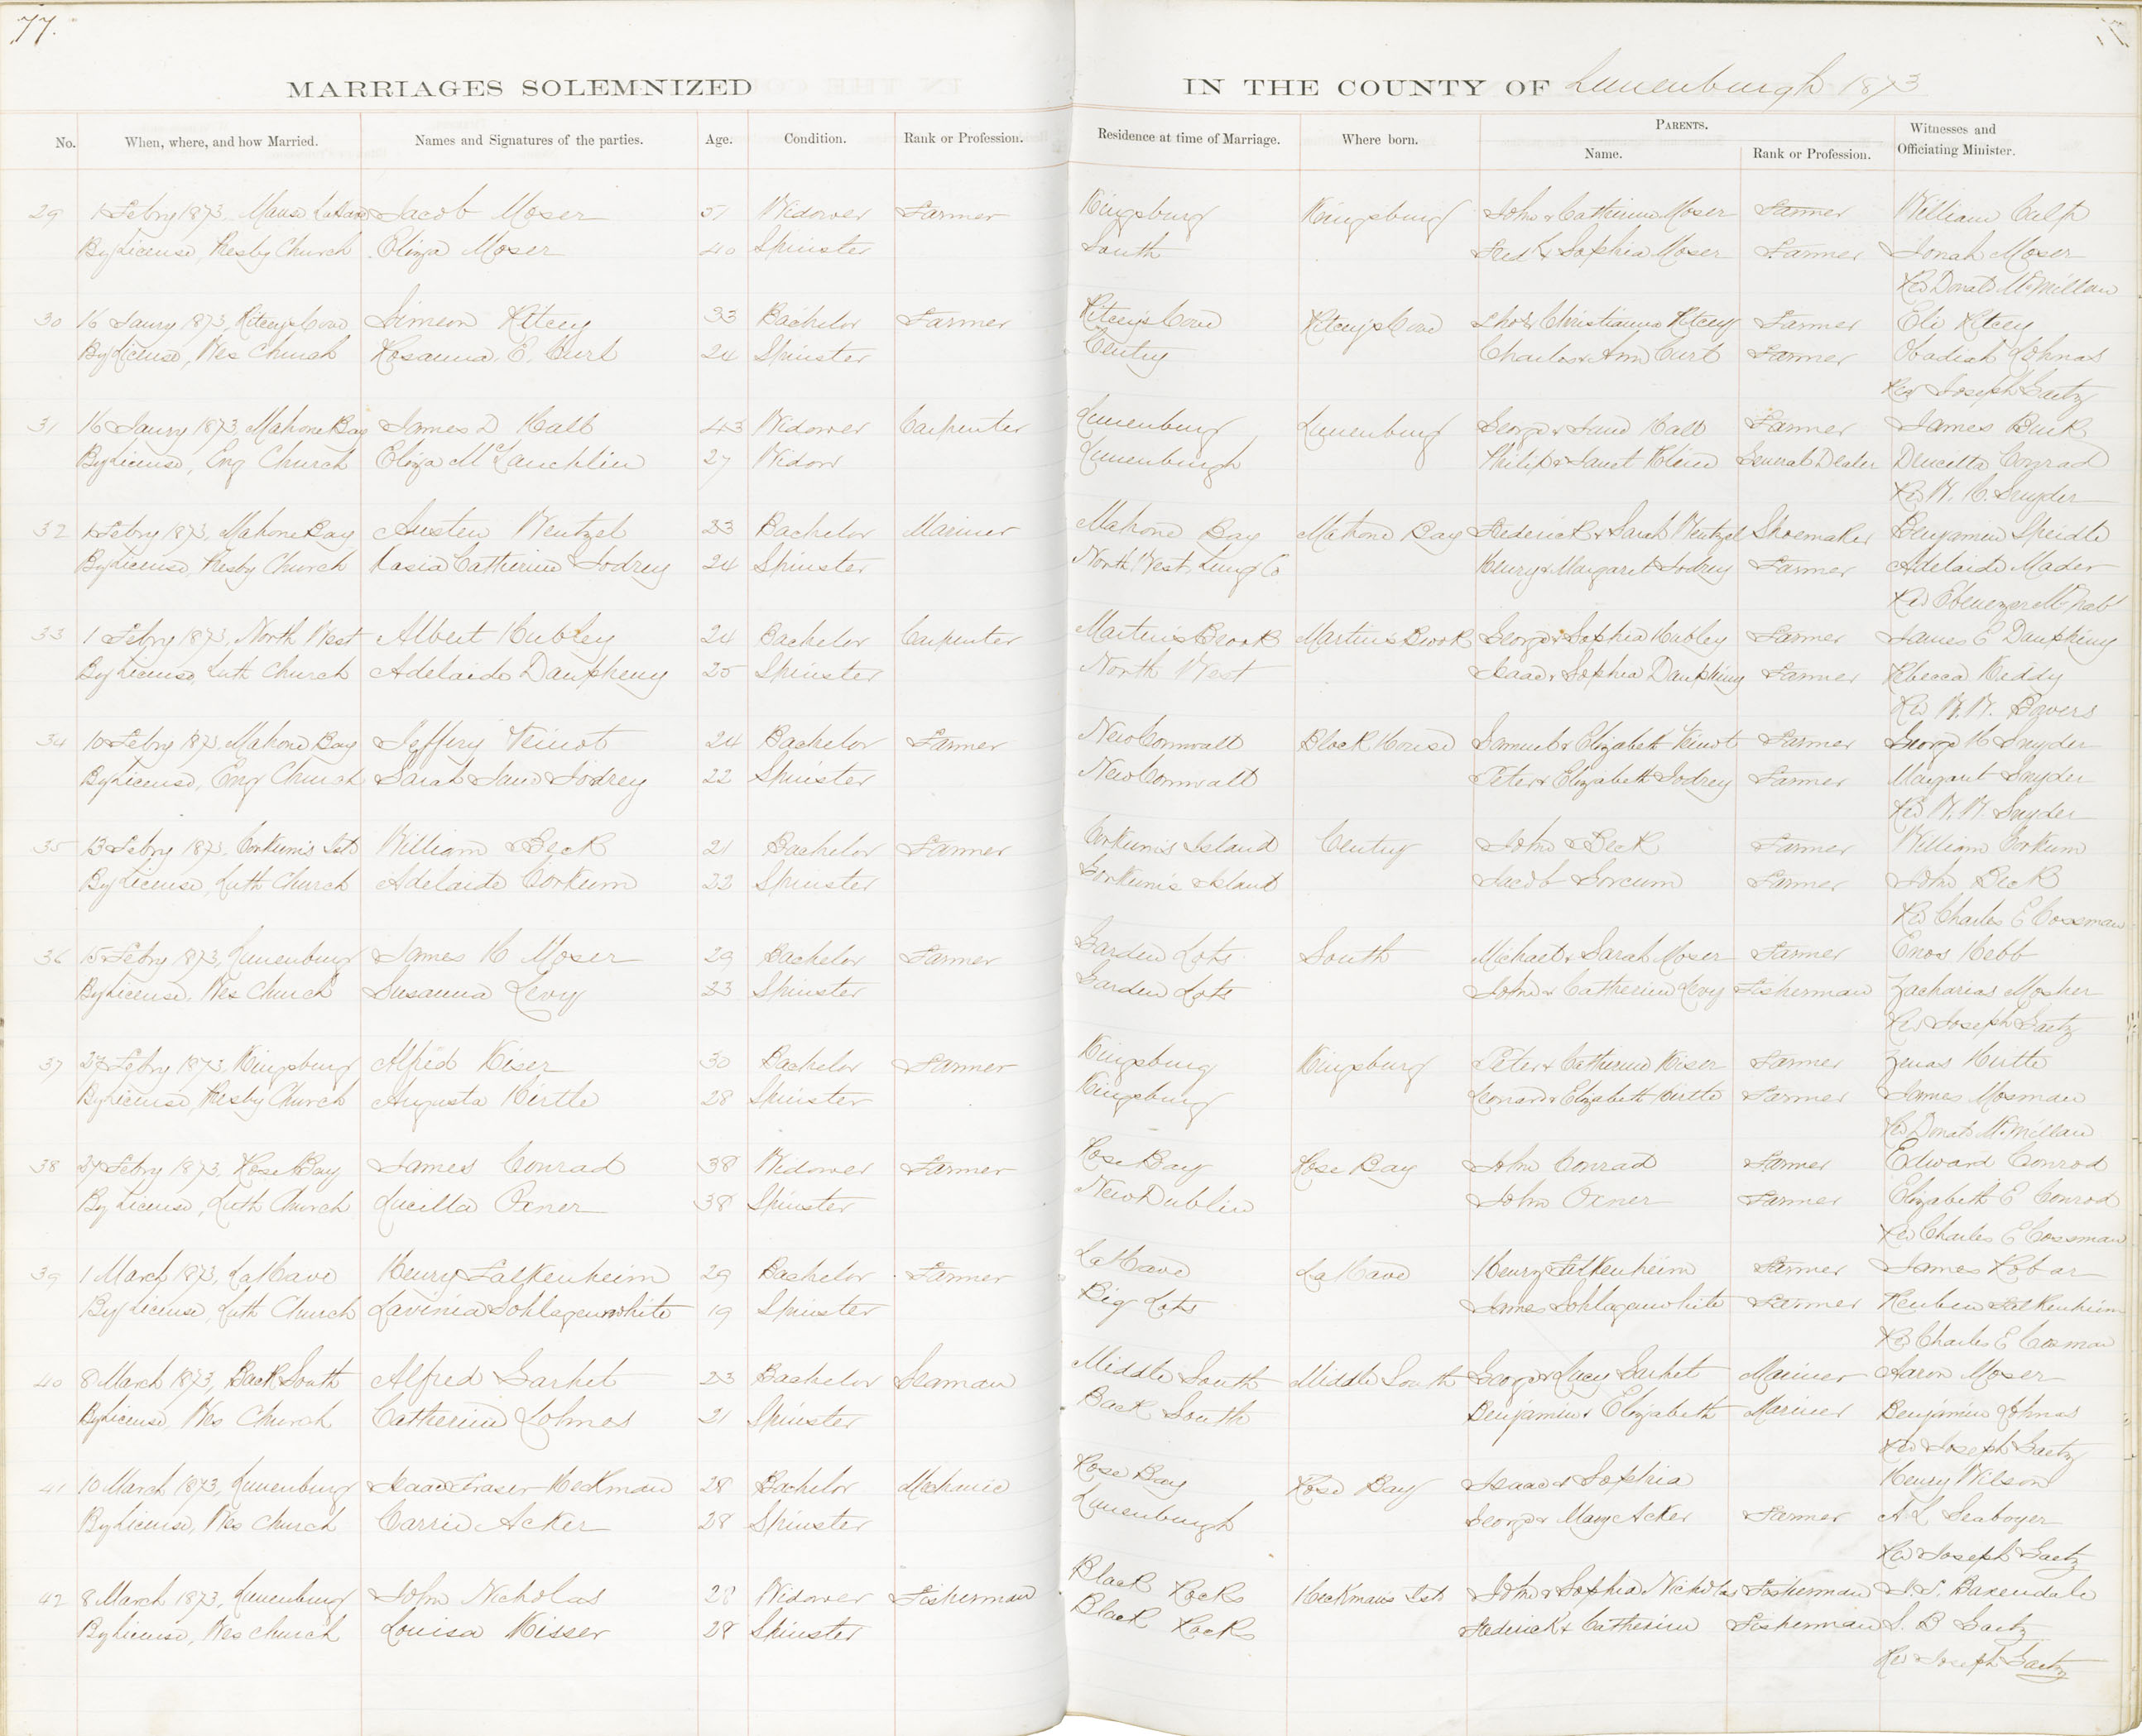 77.
MARRIAGES SOLEMNIZED IN THE COUNTY OF Lunenburgh 1873
No. When, where, and how Married. Names and Signatures of the parties. Age. Condition. Rank or Profession. Residence at time of Marriage. Where born. PARENTS. Name. Rank or Profession. Witnesses and Officiating Minister.
29 1 Febry 1873, Manse Jacob Moser 51 Widower Farmer Kingsburg Kingsburg John & Catherine Moser Farmer William
By License, Presby Church Eliza Moser 40 Spinster South Fred k & Sophia Moser Farmer Jonah Moser
Rev Donald McMillan
30 16 Janry 1873, Ritcey's Cove Simeon Ritcey 33 Bachelor Farmer Ritcey's Cove Ritcey's Cove & Christianna Ritcey Farmer Eli Ritcey
By License, Wes Church Rosanna E. 24 Spinster Centry Charles & Ann Farmer Obadiah
Rev Joseph Gaetz
31 16 Janry 1873 Mahone Bay James D 43 Widower Carpenter Lunenburg Lunenburg George & Jane Farmer James
By License, Eng Church Eliza McLauchlin 27 Widow Lunenburgh Philip & Janet Kline General Dealer Conrad
Rev W. H. Snyder
32 1 Febry 1873, Mahone Bay Austen Wentzel 23 Bachelor Mariner Mahone Bay Mahone Bay Frederick & Sarah Wentzel Shoemaker Benjamin Speidle
By License, Presby Church Kasia Catherine Jodrey 24 Spinster North West, Lung Co Henry & Margaret Jodrey Farmer Adelaide Mader
Rev Ebenezer McNab
33 1 Febry 1873, North West Albert Hubley 24 Bachelor Carpenter Martin's Brook Martins Brook George & Sophia Hubley Farmer James E Dauphiny
By License, Luth Church Adelaide Daupheny 25 Spinster North West Isaac & Sophia Dauphiny Farmer Rebecca
Rev W. W. Bowers
34 10 Febry 1873, Mahone Bay Jeffery Veinot 24 Bachelor Farmer New Cornwall Block House Samuel & Elizabeth Veinot Farmer George H Snyder
By License, Eng Church Sarah Jane Jodrey 22 Spinster New Cornwall Peter & Elizabeth Jodrey Farmer Margaret Snyder
Rev W. H. Snyder
35 13 Febry 1873, Corkum's Isld William Beck 21 Bachelor Farmer Corkum's Island Centry John Beck Farmer William Corkum
By License, Luth Church Adelaide Corkum 22 Spinster Gorkum's Island Jacob Gorcum Farmer John Beck
Rev Charles E Cossman
36 15 Febry 1873, Lunenburg James H Moser 29 Bachelor Farmer Garden Lots South Michael & Sarah Moser Farmer Enos Hebb
By License, Wes Church Susanna Levy 23 Spinster Garden Lots John & Catherine Levy Fisherman Zacharias Mosher
Rev Joseph Gaetz
37 27 Febry 1873, Kingsburg Alfred Kiser 30 Bachelor Farmer Kingsburg Kingsburg Peter & Catherine Kiser Farmer Zenas Hirtle
By License, Presby Church Augusta Hirtle 28 Spinster Kingsburg Leonard & Elizabeth Hirtle Farmer James Mosman
Rev Donald McMillan
38 27 Febry 1873, Rose Bay James Conrad 38 Widower Farmer Rose Bay Rose Bay John Conrad Farmer Edward Conrod
By License, Luth Church Lucilla Oxner 38 Spinster New Dublin John Oxner Farmer Elizabeth E Conrod
Rev Charles E Cossman
39 1 March 1873, LaHave Henry Falkenheim 29 Bachelor Farmer LaHave LaHave Henry Falkenheim Farmer James Robar
By License, Luth Church Lavinia Schlagenwhite 19 Spinster Big Lots James Schlagenwhite Farmer Reuben Falkenheim
Rev Charles E Cossman
40 8 March 1873, Back South Alfred Garhet 23 Bachelor Seaman Middle South Middle South George & Lucy Garhet Mariner Aaron Moser
By License, Wes Church Catherine Lohnes 21 Spinster Back South Benjamin & Elizabeth Mariner Benjamin Lohnas
Rev Joseph Gaetz
41 10 March 1873, Lunenburg Isaac Fraser Heckman 28 Bachelor Mechanic Rose Bay Rose Bay Isaac & Sophia Henry Wilson
By License, Wes Church Carrie Acker 28 Spinster Lunenburgh George & Mary Acker Farmer A L Seaboyer
Rev Joseph Gaetz
42 8 March 1873, Lunenburg John Nicholas 28 Widower Fisherman Black Rocks Heckman's Isld John & Sophia Nicholas Fisherman Baxendale
By License, Wes Church Louisa Kisser 28 Spinster Black Rocks Frederick & Catherine Fisherman S. B Gaetz
Rev Joseph Gaetz